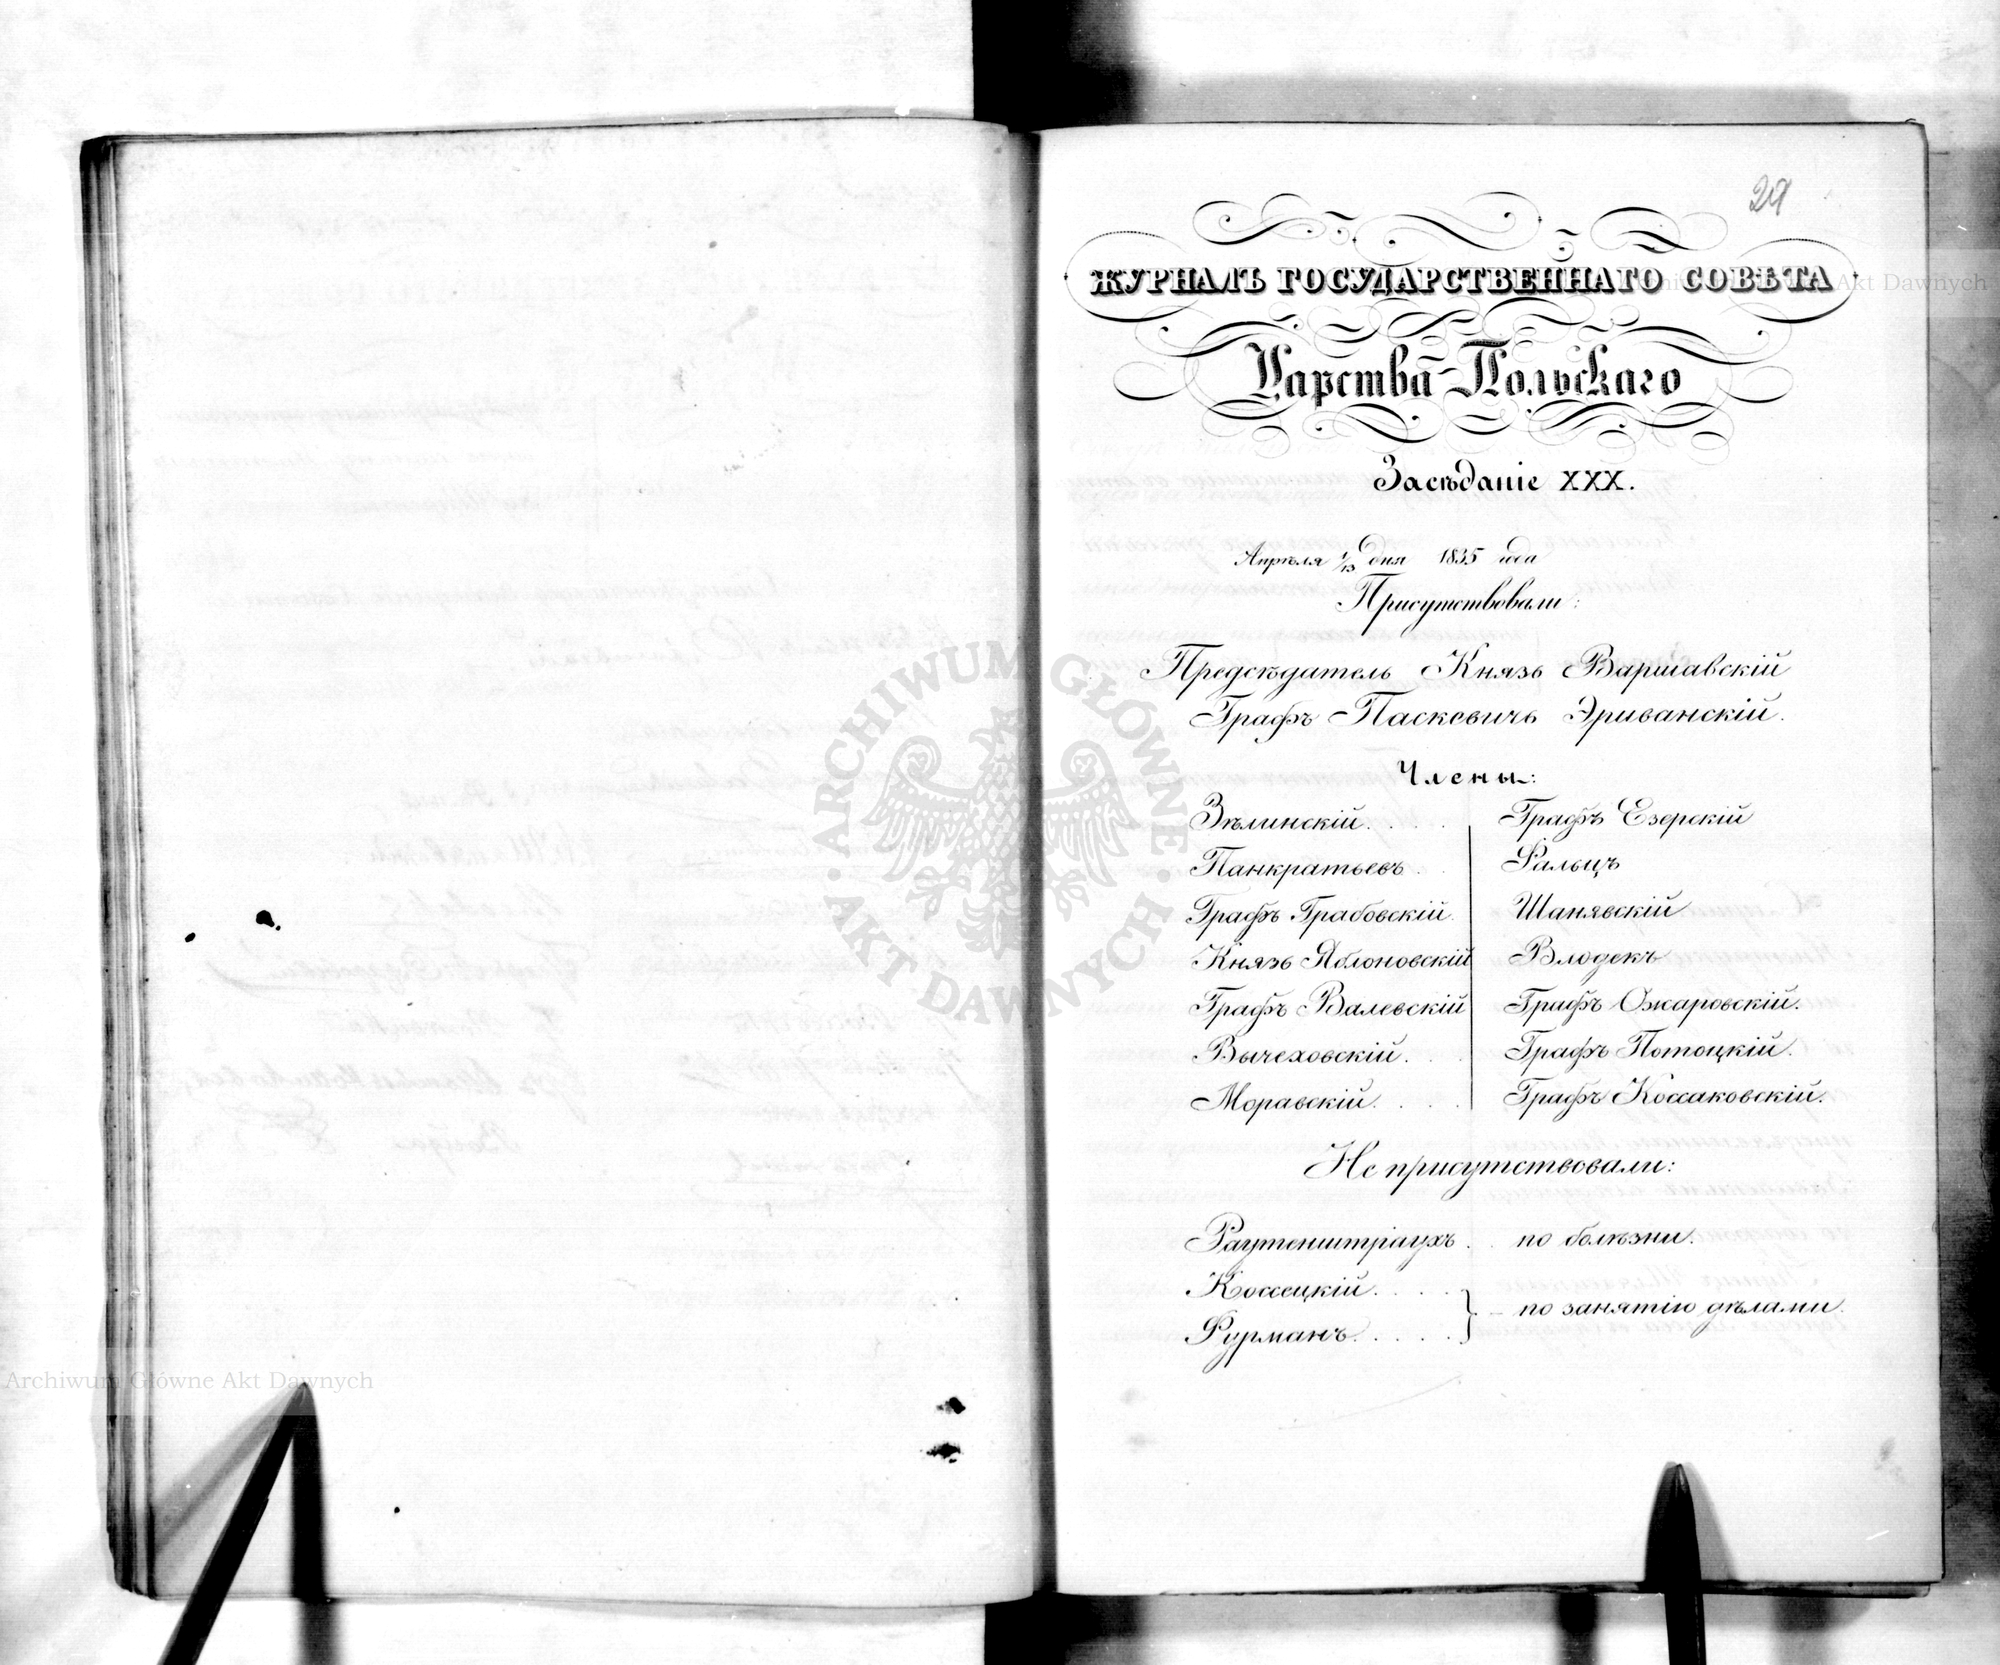 29
ЖУРНАЛЪ ГОСУДАРСТВЕННАГО СОВѢТА
Царства Польскаго
Засѣданіе XXX.
Апрѣля 1/13 дня 1835 года
Присутствовали:
Предсѣдатель Князь Варшавскій
Графъ Паскевичь Эриванскій.
Члены:
Зѣлинскій. . . . Графъ Езерскій
Панкратьевъ . . Фальцъ
Графъ Грабовскій. Шанявскій
Князь Яблоновскій Влодекъ
Графъ Валевскій Графъ Ожаровскій.
Вычеховскій. . . Графъ Потоцкій.
Моравскій. . . . Графъ Коссаковскій.
Не присутствовали:
Раутенштраухъ . . по болѣзни.
Коссецкій. . . . .
} – по занятію дѣлами.
Фурманъ. . . . .
ARCHIWUM GŁÓWNE · AKT DAWNYCH ·
Archiwum Główne Akt Dawnych
Akt Dawnych